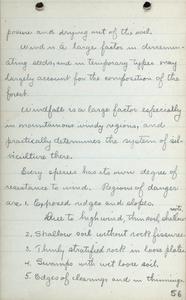 power and drying out of the soil.
Wind is a large factor in dissemin-
ating seeds, and in temporary types may
largely account for the composition of the
forest.
Windfall is a large factor especially
in mountainous windy regions, and
practically determines the system of sil-
viculture there.
Every species has its own degree of
resistance to wind. Regions of danger
are 1. Exposed ridges and slopes.
Due to high wind, thin soil, shallow roots
2. Shallow soil without rock fissures
3. Thinly stratified rock in loose plates
4. Swamps with wet loose soil.
5. Edges of clearings and in thinnings
56